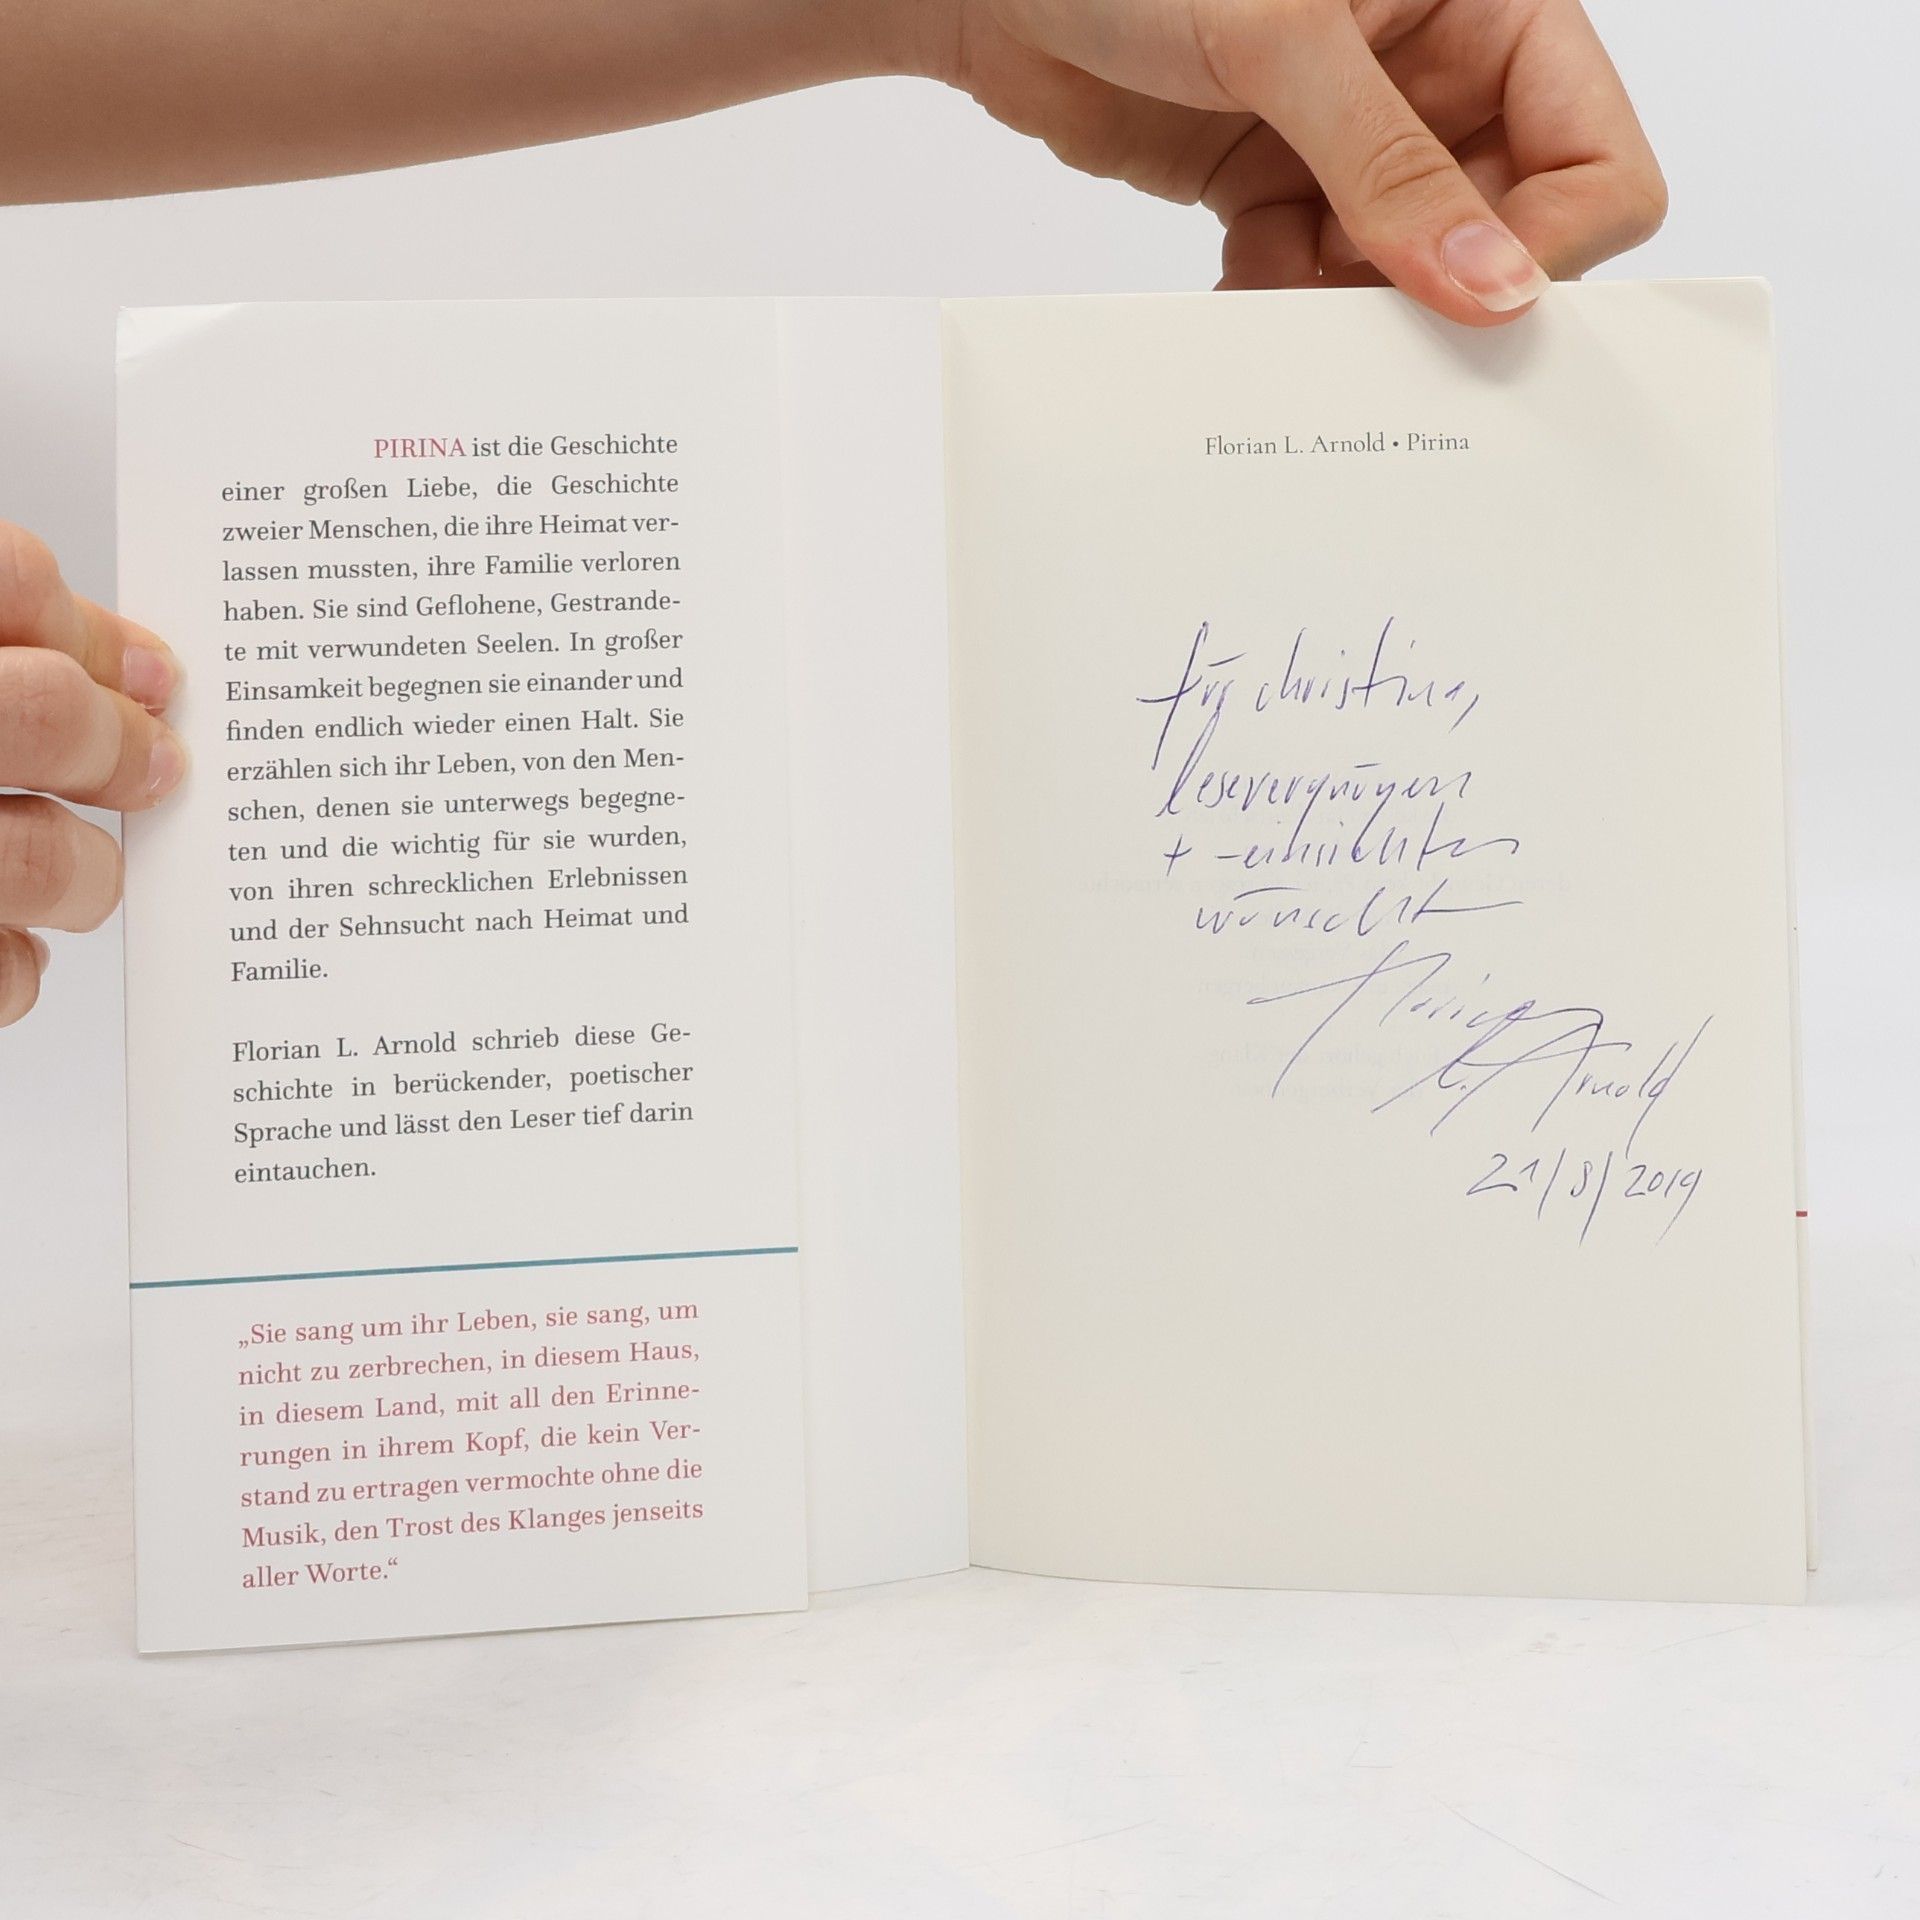 PIRINA ist die Geschichte
einer großen Liebe, die Geschichte
zweier Menschen, die ihre Heimat ver-
lassen mussten, ihre Familie verloren
haben. Sie sind Geflohene, Gestrande-
te mit verwundeten Seelen. In großer
Einsamkeit begegnen sie einander und
finden endlich wieder einen Halt. Sie
erzählen sich ihr Leben, von den Men-
schen, denen sie unterwegs begegne-
ten und die wichtig für sie wurden,
von ihren schrecklichen Erlebnissen
und der Sehnsucht nach Heimat und
Familie.
Florian L. Arnold schrieb diese Ge-
schichte in berückender, poetischer
Sprache und lässt den Leser tief darin
eintauchen.
„Sie sang um ihr Leben, sie sang, um
nicht zu zerbrechen, in diesem Haus,
in diesem Land, mit all den Erinne-
rungen in ihrem Kopf, die kein Ver-
stand zu ertragen vermochte ohne die
Musik, den Trost des Klanges jenseits
aller Worte.“
Florian L. Arnold • Pirina
für christina,
lesevergnügen
+ -einsichten
wünscht
Florian
L. Arnold
21/8/2019